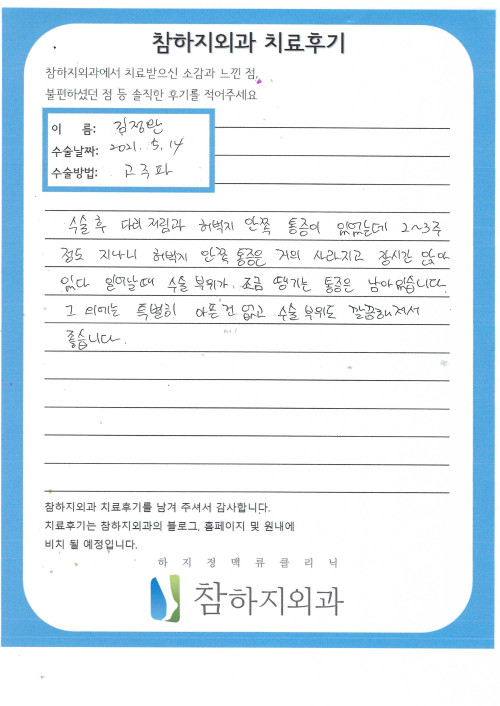 참하지외과 치료후기
참하지외과에서 치료받으신 소감과 느낀 점,
불편하셨던 점 등 솔직한 후기를 적어주세요
이 름: 김정란
수술날짜: 2021. 5. 14
수술방법: 고주파
수술 후 다리 저림과 허벅지 안쪽 통증이 있었는데 2~3주
정도 지나니 허벅지 안쪽 통증은 거의 사라지고 장시간 앉아
있다 일어날때 수술 부위가 조금 땡기는 통증은 남아있습니다.
그 외에는 특별히 아픈건 없고 수술 부위도 깔끔해져서
좋습니다.
참하지외과 치료후기를 남겨 주셔서 감사합니다.
치료후기는 참하지외과의 블로그, 홈페이지 및 원내에
비치 될 예정입니다.
하지정맥류클리닉
참하지외과